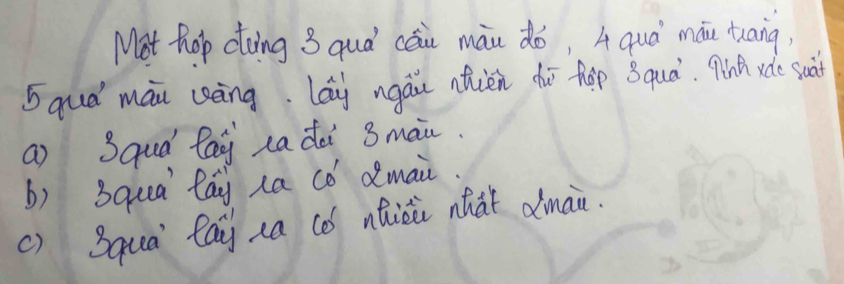 Một hộp đựng 3 quả cầu màu đỏ, 4 quả màu trắng,
5 quả màu vàng. Lấy ngẫu nhiên từ hộp 3 quả. Tính xác suất
a) 3 quả lấy ra đủ 3 màu.
b) 3 quả lấy ra có 2 màu.
c) 3 quả lấy ra có nhiều nhất 2 màu.